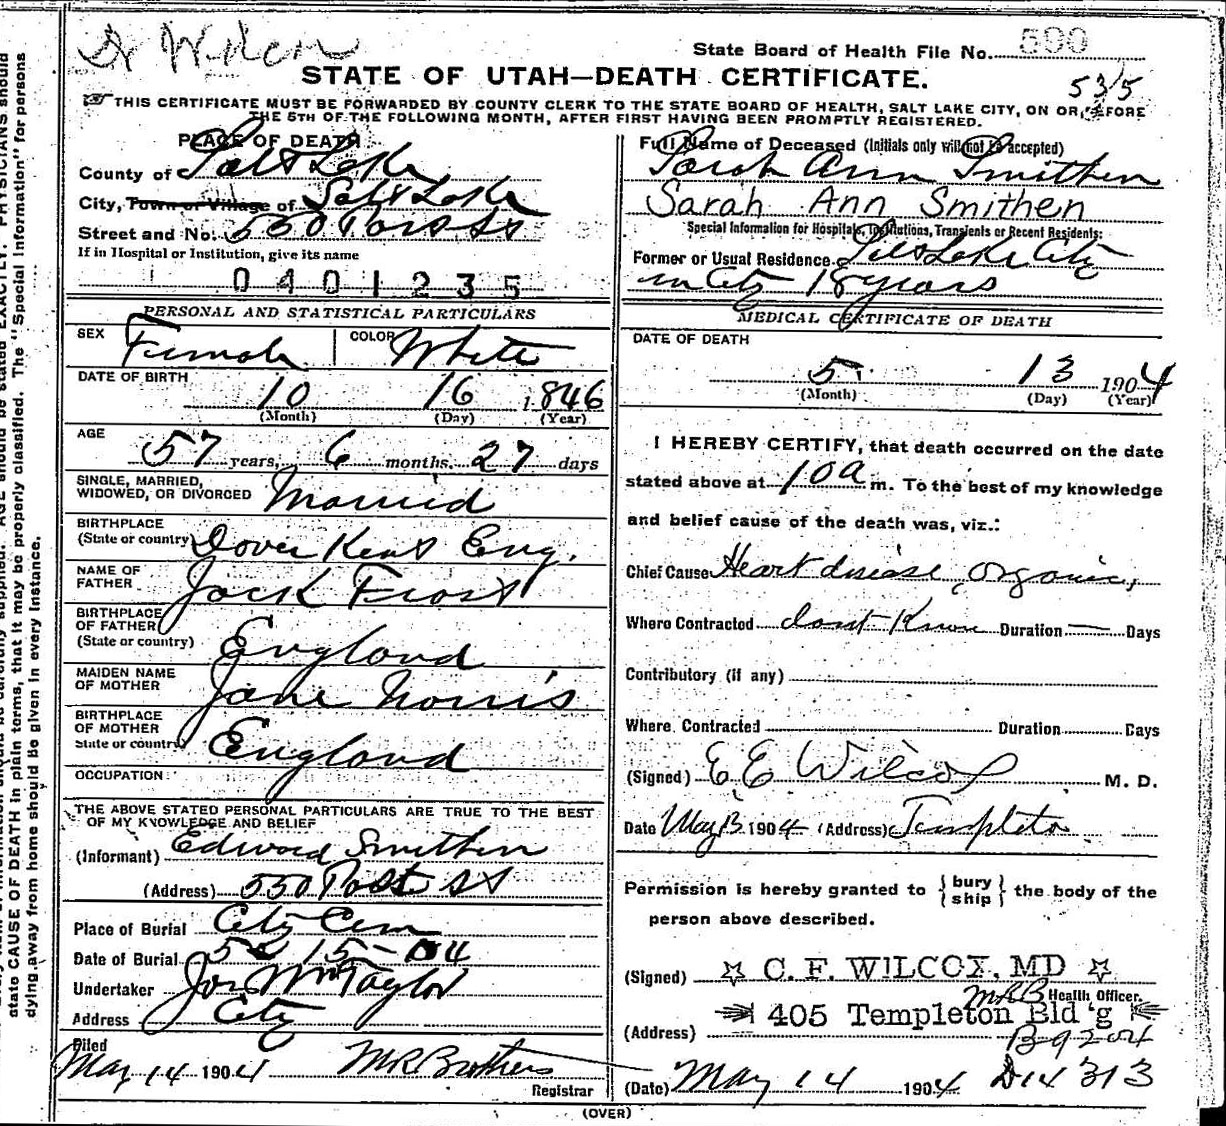 Dr Wilcox
State Board of Health File No. 590
STATE OF UTAH—DEATH CERTIFICATE.
535
THIS CERTIFICATE MUST BE FORWARDED BY COUNTY CLERK TO THE STATE BOARD OF HEALTH, SALT LAKE CITY, ON OR BEFORE
THE 5TH OF THE FOLLOWING MONTH, AFTER FIRST HAVING BEEN PROMPTLY REGISTERED.
PLACE OF DEATH
County of Salt Lake
City, Town or Village of Salt Lake
Street and No. 550 Post St
If in Hospital or Institution, give its name
0401235
PERSONAL AND STATISTICAL PARTICULARS
SEX Female COLOR White
DATE OF BIRTH
10 16 1846
(Month) (Day) (Year)
AGE
57 years, 6 months, 27 days
SINGLE, MARRIED,
WIDOWED, OR DIVORCED Married
BIRTHPLACE
(State or country) Dover Kent Eng.
NAME OF
FATHER Jack Frost
BIRTHPLACE
OF FATHER
(State or country) England
MAIDEN NAME
OF MOTHER Jane Norris
BIRTHPLACE
OF MOTHER
State or country England
OCCUPATION
THE ABOVE STATED PERSONAL PARTICULARS ARE TRUE TO THE BEST
OF MY KNOWLEDGE AND BELIEF
(Informant) Edward Smithen
(Address) 550 Post St
Place of Burial City Cem
Date of Burial 5 15-04
Undertaker Jos Wm Taylor
Address City
Filed
May 14 1904 MR Brothers
Registrar
Full Name of Deceased (Initials only will not be accepted)
Sarah Ann Smithen
Sarah Ann Smithen
Special Information for Hospitals, Institutions, Transients or Recent Residents:
Former or Usual Residence Salt Lake City
in City 18 years
MEDICAL CERTIFICATE OF DEATH
DATE OF DEATH
5 13 1904
(Month) (Day) (Year)
I HEREBY CERTIFY, that death occurred on the date
stated above at 10 a m. To the best of my knowledge
and belief cause of the death was, viz.:
Chief Cause Heart disease, Organic,
Where Contracted dont Know Duration — Days
Contributory (if any)
Where Contracted Duration Days
(Signed) E E Wilcox M. D.
Date May 13 1904 (Address) Templeton
Permission is hereby granted to { bury
ship } the body of the
person above described.
(Signed) C. F. WILCOX, MD
MRB Health Officer.
405 Templeton Bld'g
(Address)
B 9204
D14 313
(Date) May 14 1904
(OVER)
state CAUSE OF DEATH in plain terms, that it may be properly classified. The "Special Information" for persons
dying away from home should be given in every instance.